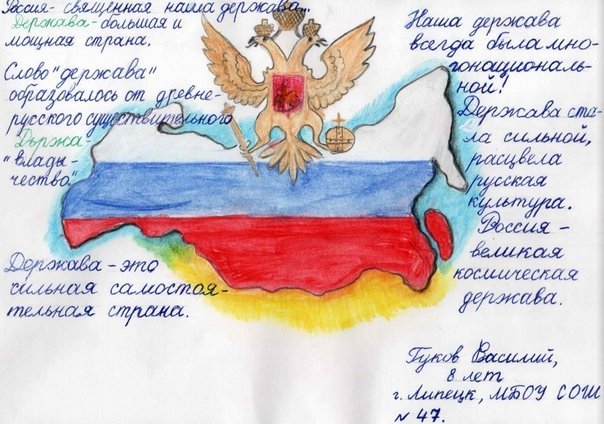 Россия- священная наша держава...
Держава- большая и
мощная страна.
Слово "держава"
образовалось от древне-
русского существительного
Държа-
"влады-
чество".
Держава - это
сильная самостоя-
тельная страна.
Наша держава
всегда была мно-
гонациональ-
ной!
Держава ста-
ла сильной,
расцвела
русская
культура.
Россия -
великая
космическая
держава.
Гуков Василий,
8 лет
г. Липецк, МБОУ СОШ
№ 47.